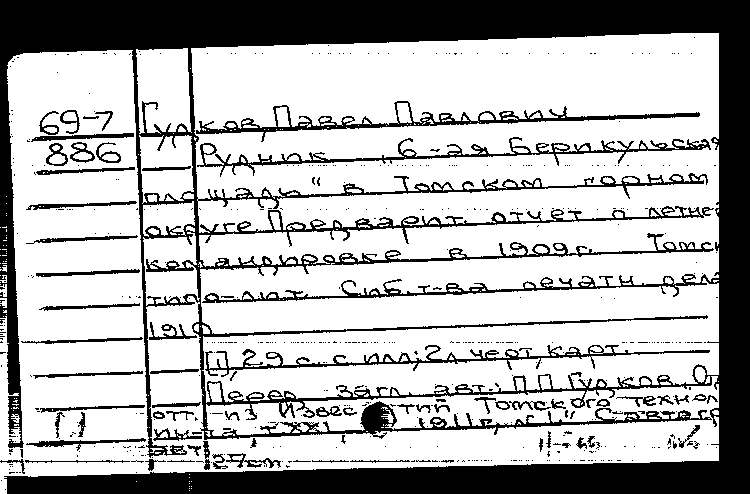 69-7 Гудков, Павел Павлович
886 Рудник „6-ая Берикульская
площадь" в Томском горном
округе. Предварит. отчет о летней
командировке в 1909г. Томск
типо-лит. Сиб. т-ва печатн. дела
1910
[1], 29 с. с илл; 2л черт, карт.
Перед загл. авт.: П.П. Гудков. От
отт. из „Известий Томского технол
ин-та, т. XXI, 1911г, №1" С автогр
авт.
27см.